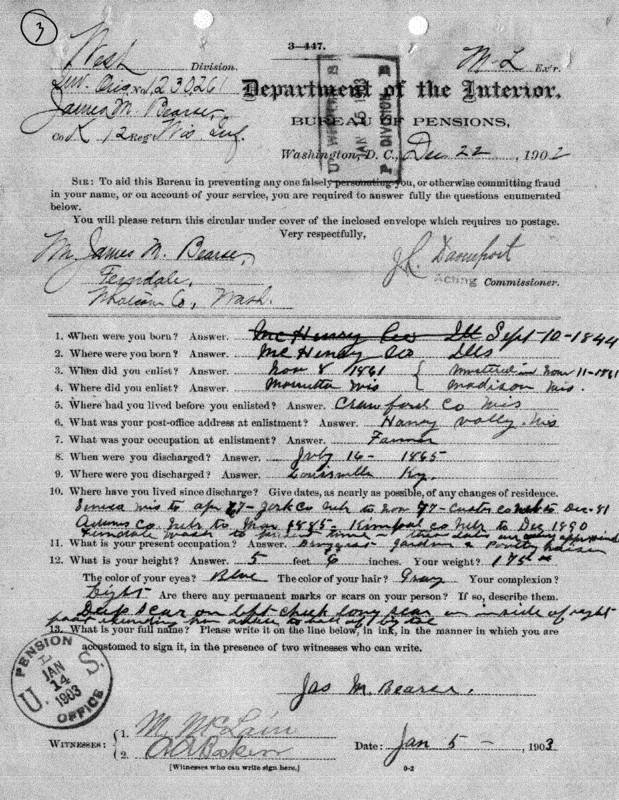 3
3—447.
West Division.
M-L Ex'r.
Inv. Orig. No. 1230261
Department of the Interior,
James M. Bearse,
BUREAU OF PENSIONS,
Co. K 12 Reg't Wis Inf.
Washington, D. C., Dec 22, 1902
SIR: To aid this Bureau in preventing any one falsely personating you, or otherwise committing fraud
in your name, or on account of your service, you are required to answer fully the questions enumerated
below.
You will please return this circular under cover of the inclosed envelope which requires no postage.
Very respectfully,
Mr. James M. Bearse,
J L Davenport
Ferndale,
Acting Commissioner.
Whatcom Co., Wash.
1. When were you born? Answer. Mc Henry Co Ill Sept-10-1844
2. Where were you born? Answer. Mc Henry Co Ills
3. When did you enlist? Answer. Nov 8 1861 { Mustered in Nov 11-1861
4. Where did you enlist? Answer. Wis { Madison Wis.
5. Where had you lived before you enlisted? Answer. Crawford Co Wis
6. What was your post-office address at enlistment? Answer. Haney Vally. Wis
7. What was your occupation at enlistment? Answer. Farmer
8. When were you discharged? Answer. July 16- 1865
9. Where were you discharged? Answer. Louisville Ky.
10. Where have you lived since discharge? Give dates, as nearly as possible, of any changes of residence.
Seneca Wis to apr 77- York Co Nebr to Nov 77- Custer co Neb to Dec-81
Adams Co. Nebr to Mar 1885- Kimbal co Nebr to Dec 1890
Ferndale Wash to present time -
11. What is your present occupation? Answer. gardner & Poultry raiser
12. What is your height? Answer. 5 feet 6 inches. Your weight? 175
The color of your eyes? Blue The color of your hair? Gray Your complexion?
Light Are there any permanent marks or scars on your person? If so, describe them.
Deep scar on left cheek long scar on inside of right
foot extending from ankle to ball of big toe
13. What is your full name? Please write it on the line below, in ink, in the manner in which you are
accustomed to sign it, in the presence of two witnesses who can write.
PENSION OFFICE
U. S.
JAN
14
1903
Jas M. Bearse.
WITNESSES: { 1. M. McLain
2.
Date: Jan 5 —, 1903
[Witnesses who can write sign here.]